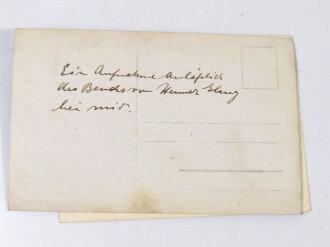 Ein Aufnahme Anläßlich
des Besuchs von Werner
bei mir.